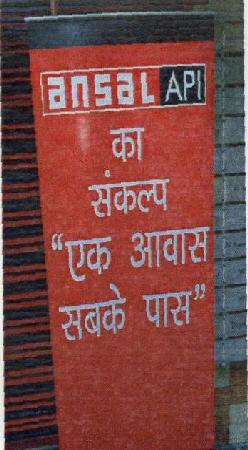 ansal API
का
संकल्प
“एक आवास
सबके पास”